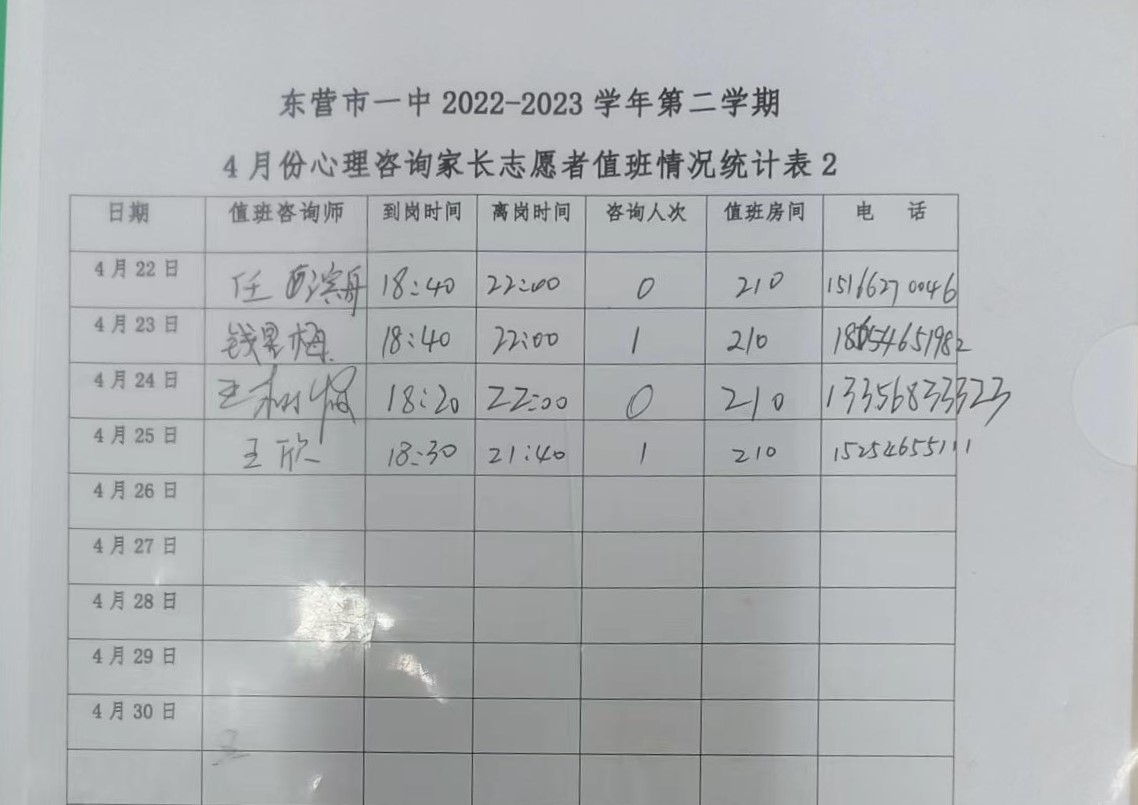 东营市一中 2022-2023 学年第二学期
4 月份心理咨询家长志愿者值班情况统计表 2
日期 值班咨询师 到岗时间 离岗时间 咨询人次 值班房间 电 话
4 月 22 日 任 18:40 22:00 0 210 15166270046
4 月 23 日 钱 梅 18:40 22:00 1 210 18654651982
4 月 24 日 王树 18:20 22:00 0 210 13356833323
4 月 25 日 王欣 18:30 21:40 1 210 15254655111
4 月 26 日
4 月 27 日
4 月 28 日
4 月 29 日
4 月 30 日